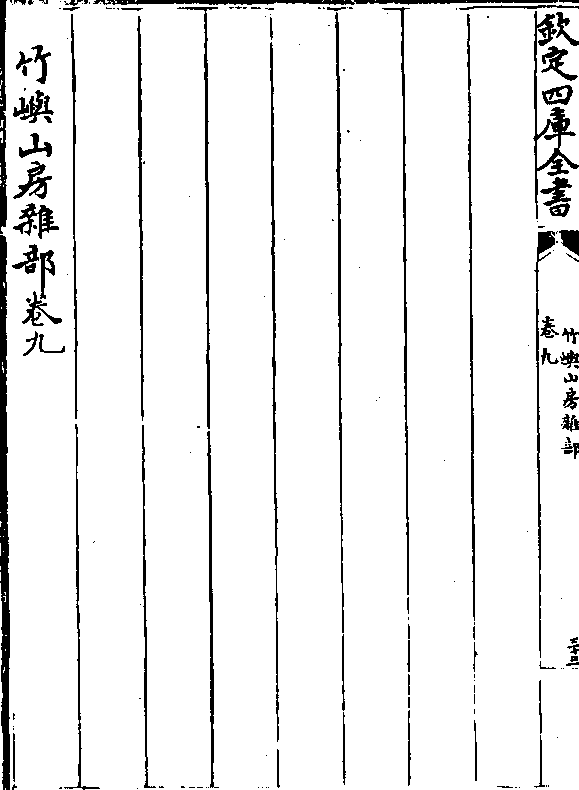 欽定四庫全書
竹嶼山房雜部
卷九
竹嶼山房雜部卷九